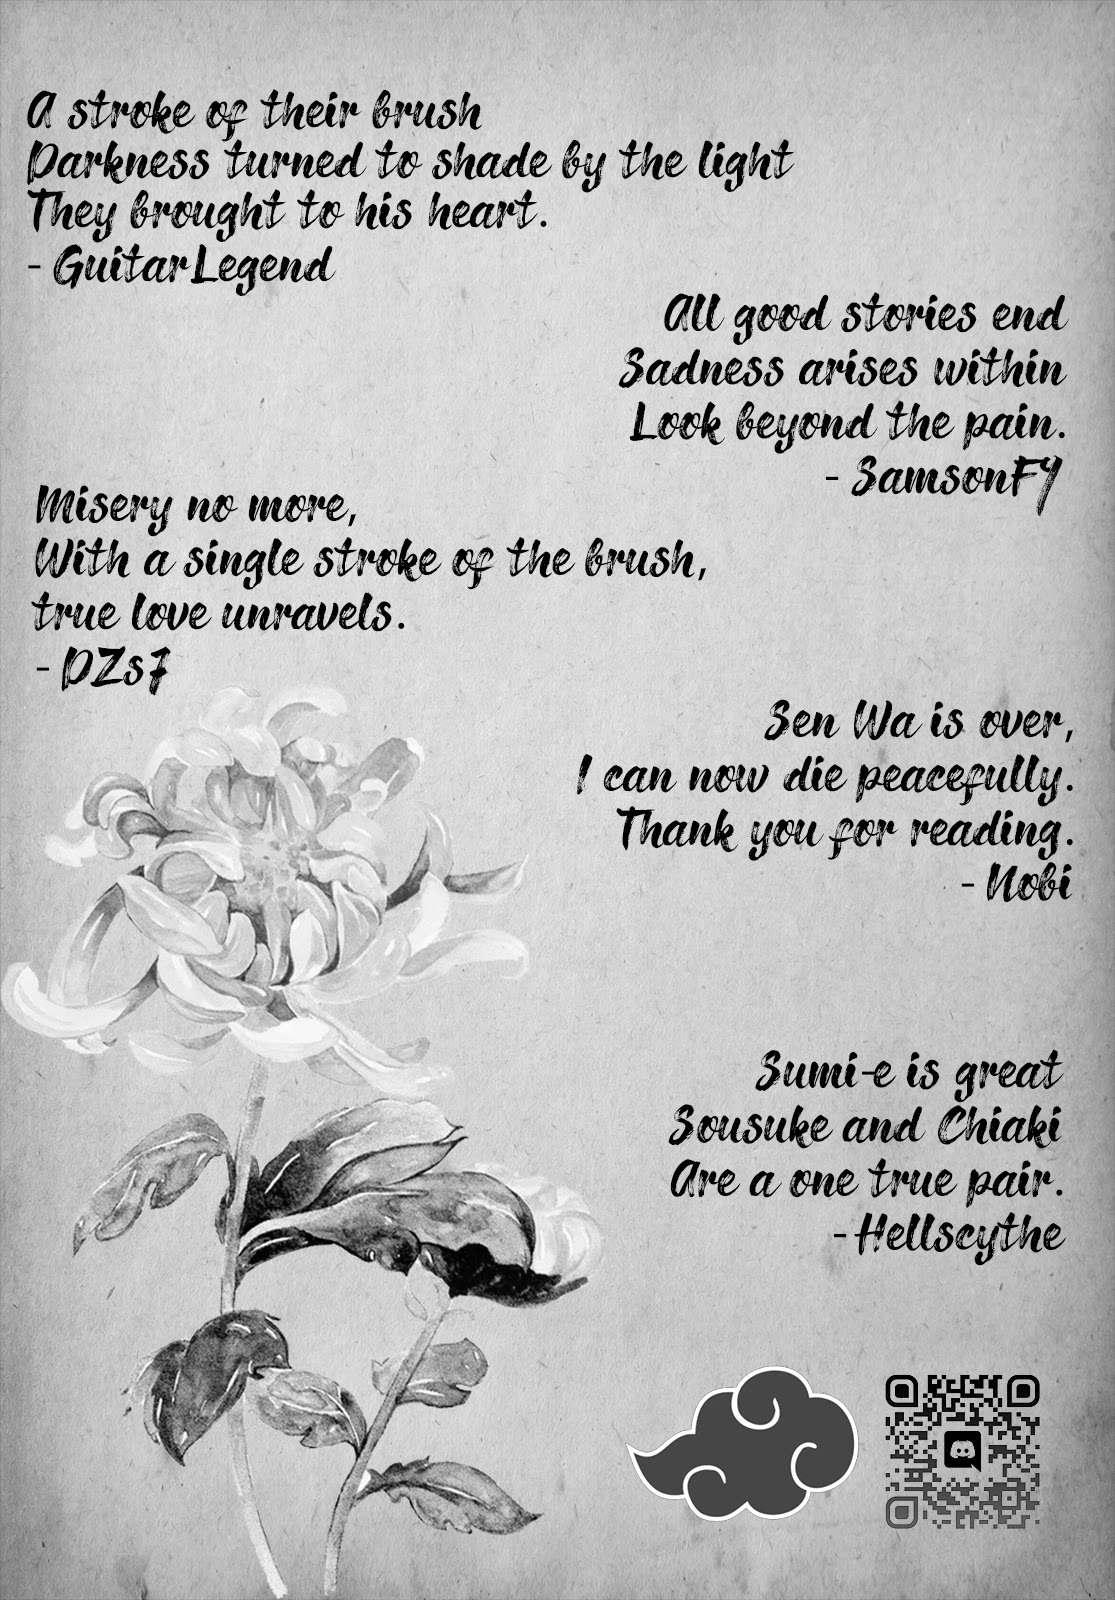 A stroke of their brush
Darkness turned to shade by the light
They brought to his heart.
- GuitarLegend
All good stories end
Sadness arises within
Look beyond the pain.
- SamsonFY
Misery no more,
With a single stroke of the brush,
true love unravels.
- DZs7
Sen Wa is over,
I can now die peacefully.
Thank you for reading.
- Nobi
Sumi-e is great
Sousuke and Chiaki
Are a one true pair.
-Hellscythe